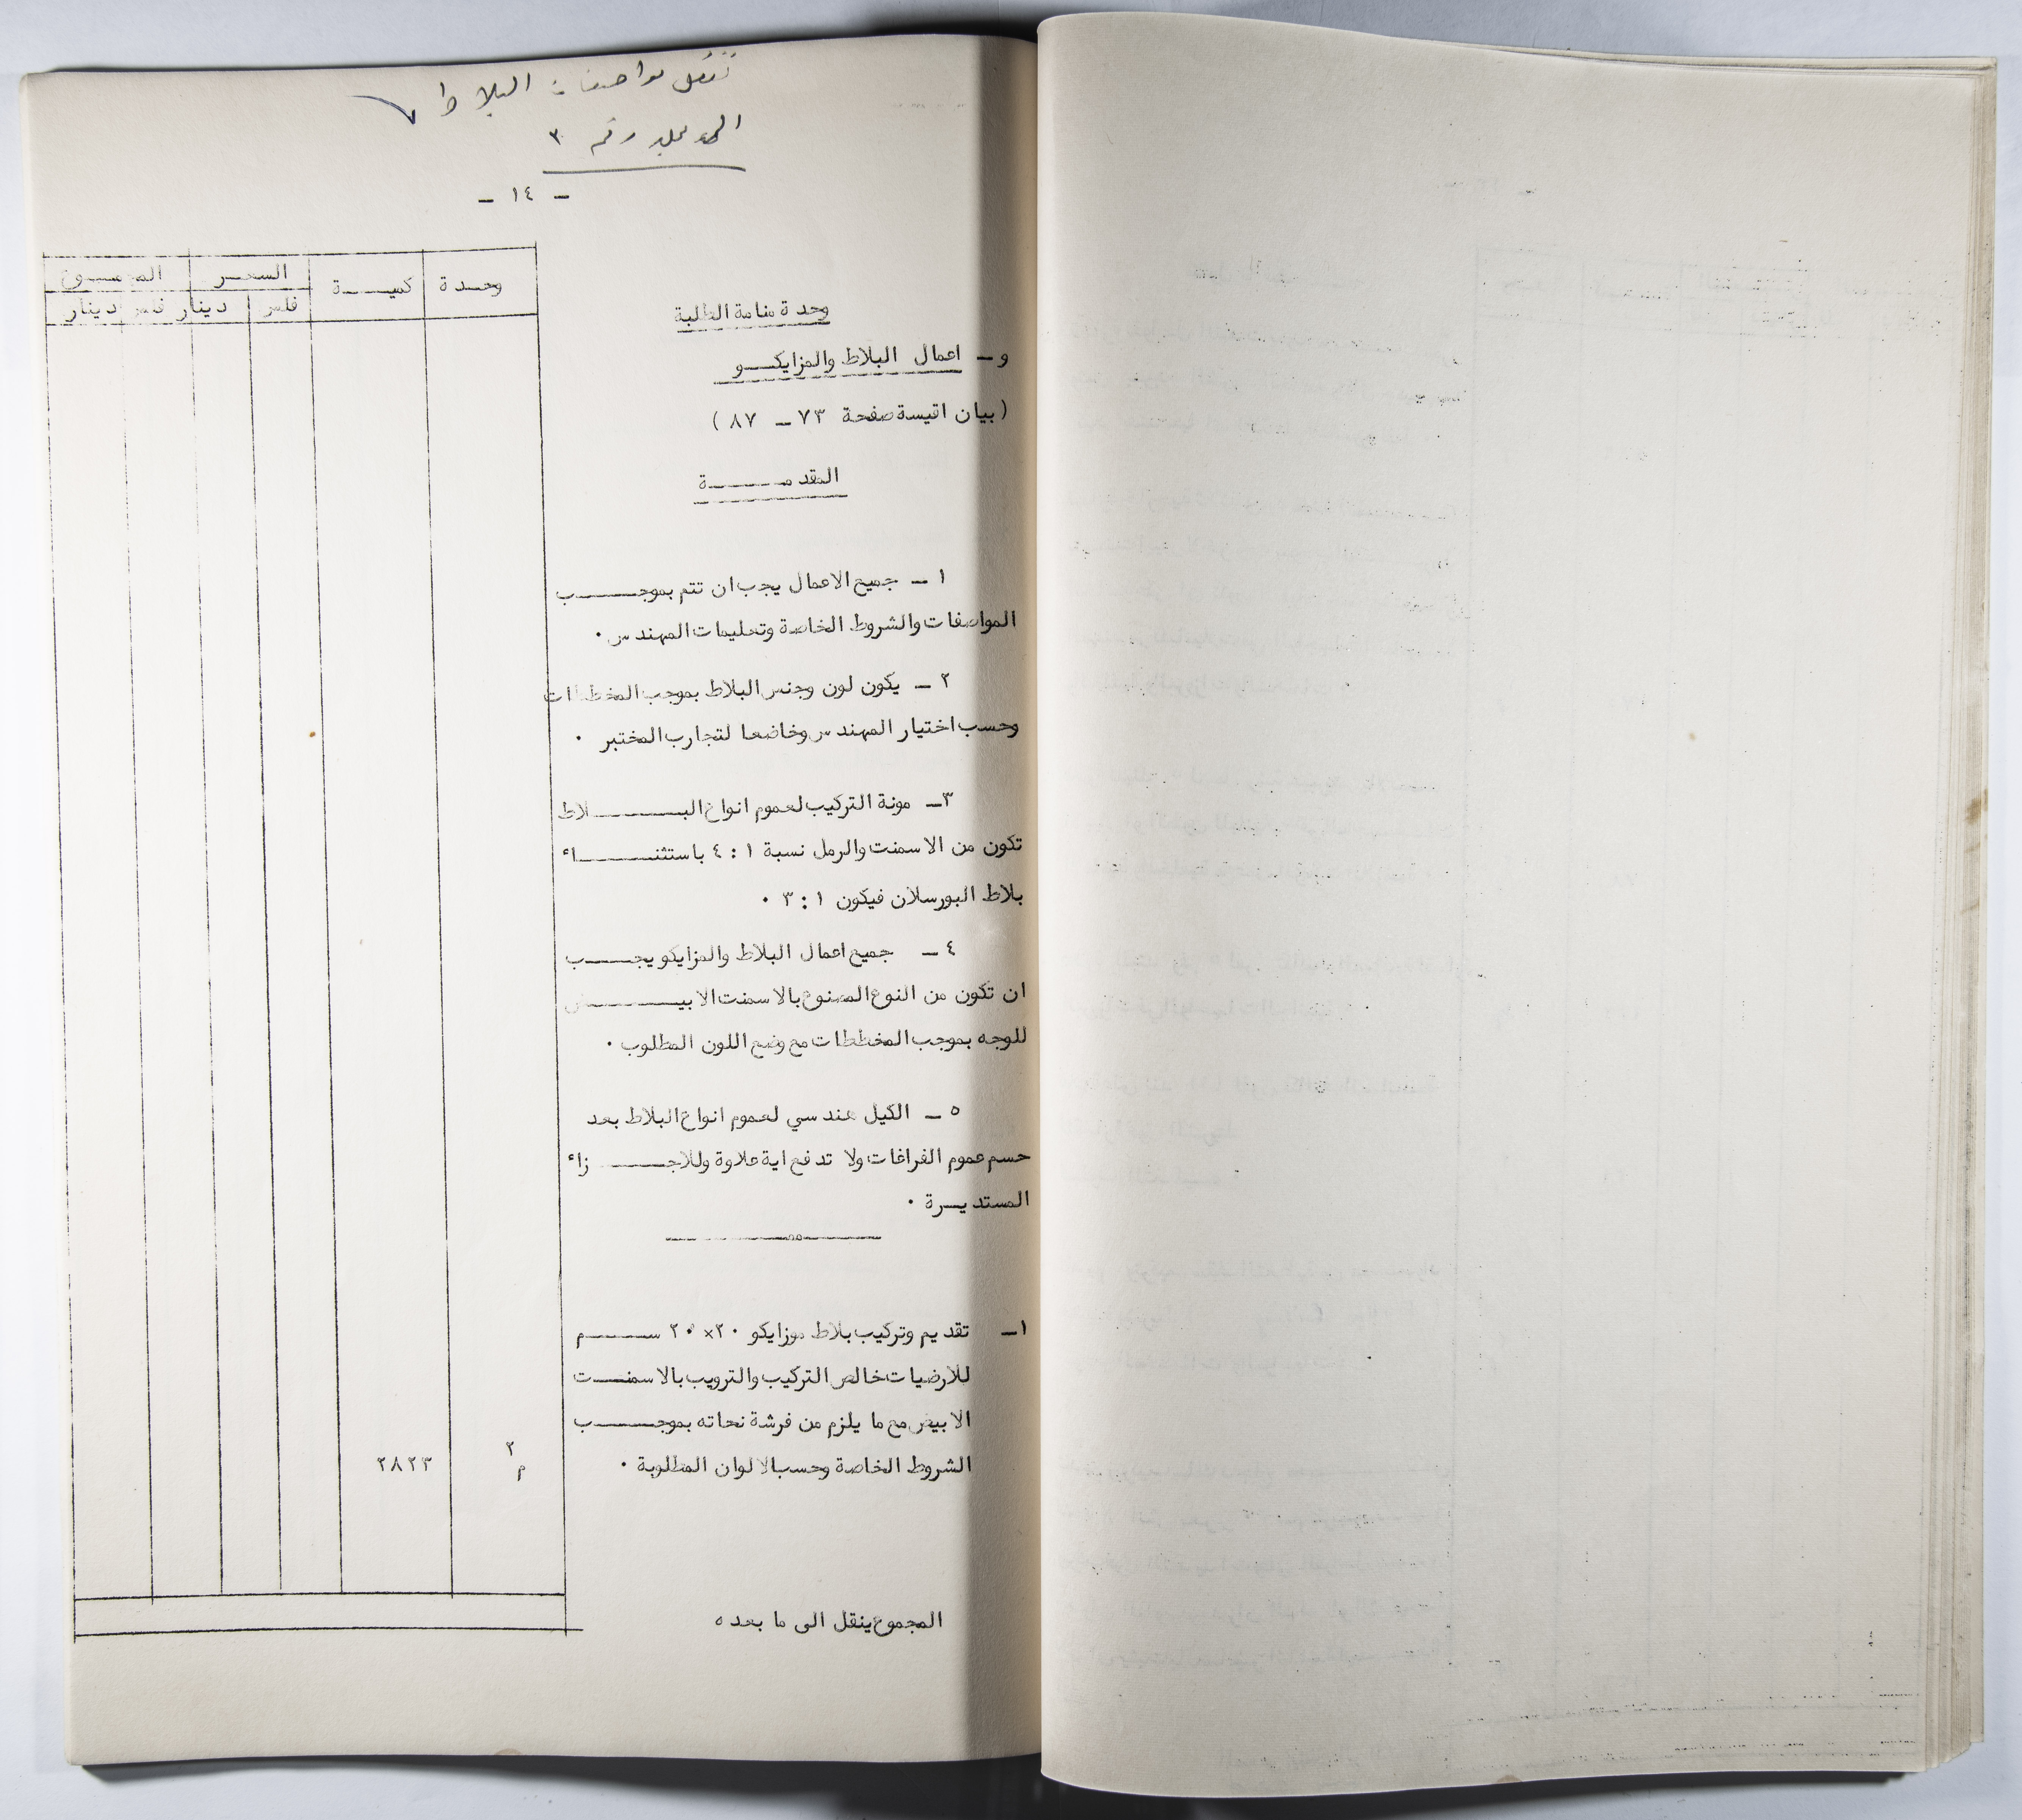 تنقل مواصفات البلاط
رقم ٣
- ١٤ -
وحدة كميـــة السعــر المجمــوع
فلس دينار فلس دينار
وحدة منامة الطلبة
و - اعمال البلاط والمزايكـــو
( بيان اقيسة صفحة ٧٣ - ٨٧ )
المقدمـــــة
١ - جميع الاعمال يجب ان تتم بموجـــــب
المواصفات والشروط الخاصة وتعليمات المهندس .
٢ - يكون لون وجنس البلاط بموجب المخططات
وحسب اختيار المهندس وخاضعا لتجارب المختبر .
٣ - مونة التركيب لعموم انواع البـــــلاط
تكون من الاسمنت والرمل نسبة ١ : ٤ باستثنـــــاء
بلاط البورسلان فيكون ١ : ٣ .
٤ - جميع اعمال البلاط والمزايكو يجـــب
ان تكون من النوع المصنوع بالاسمنت الابيـــــض
للوجه بموجب المخططات مع وضع اللون المطلوب .
٥ - الكيل هندسي لعموم انواع البلاط بعد
حسم عموم الفراغات ولا تدفع اية علاوة وللاجـــــزاء
المستديــرة .
١ - تقديم وتركيب بلاط موزايكو ٢٠×٢٠ ســـــم
للارضيات خالص التركيب والترويب بالاسمنـــت
الابيض مع ما يلزم من فرشة نحاته بموجـــــب
الشروط الخاصة وحسب الالوان المطلوبة . م٢ ٢٨٢٣
المجموع ينقل الى ما بعده